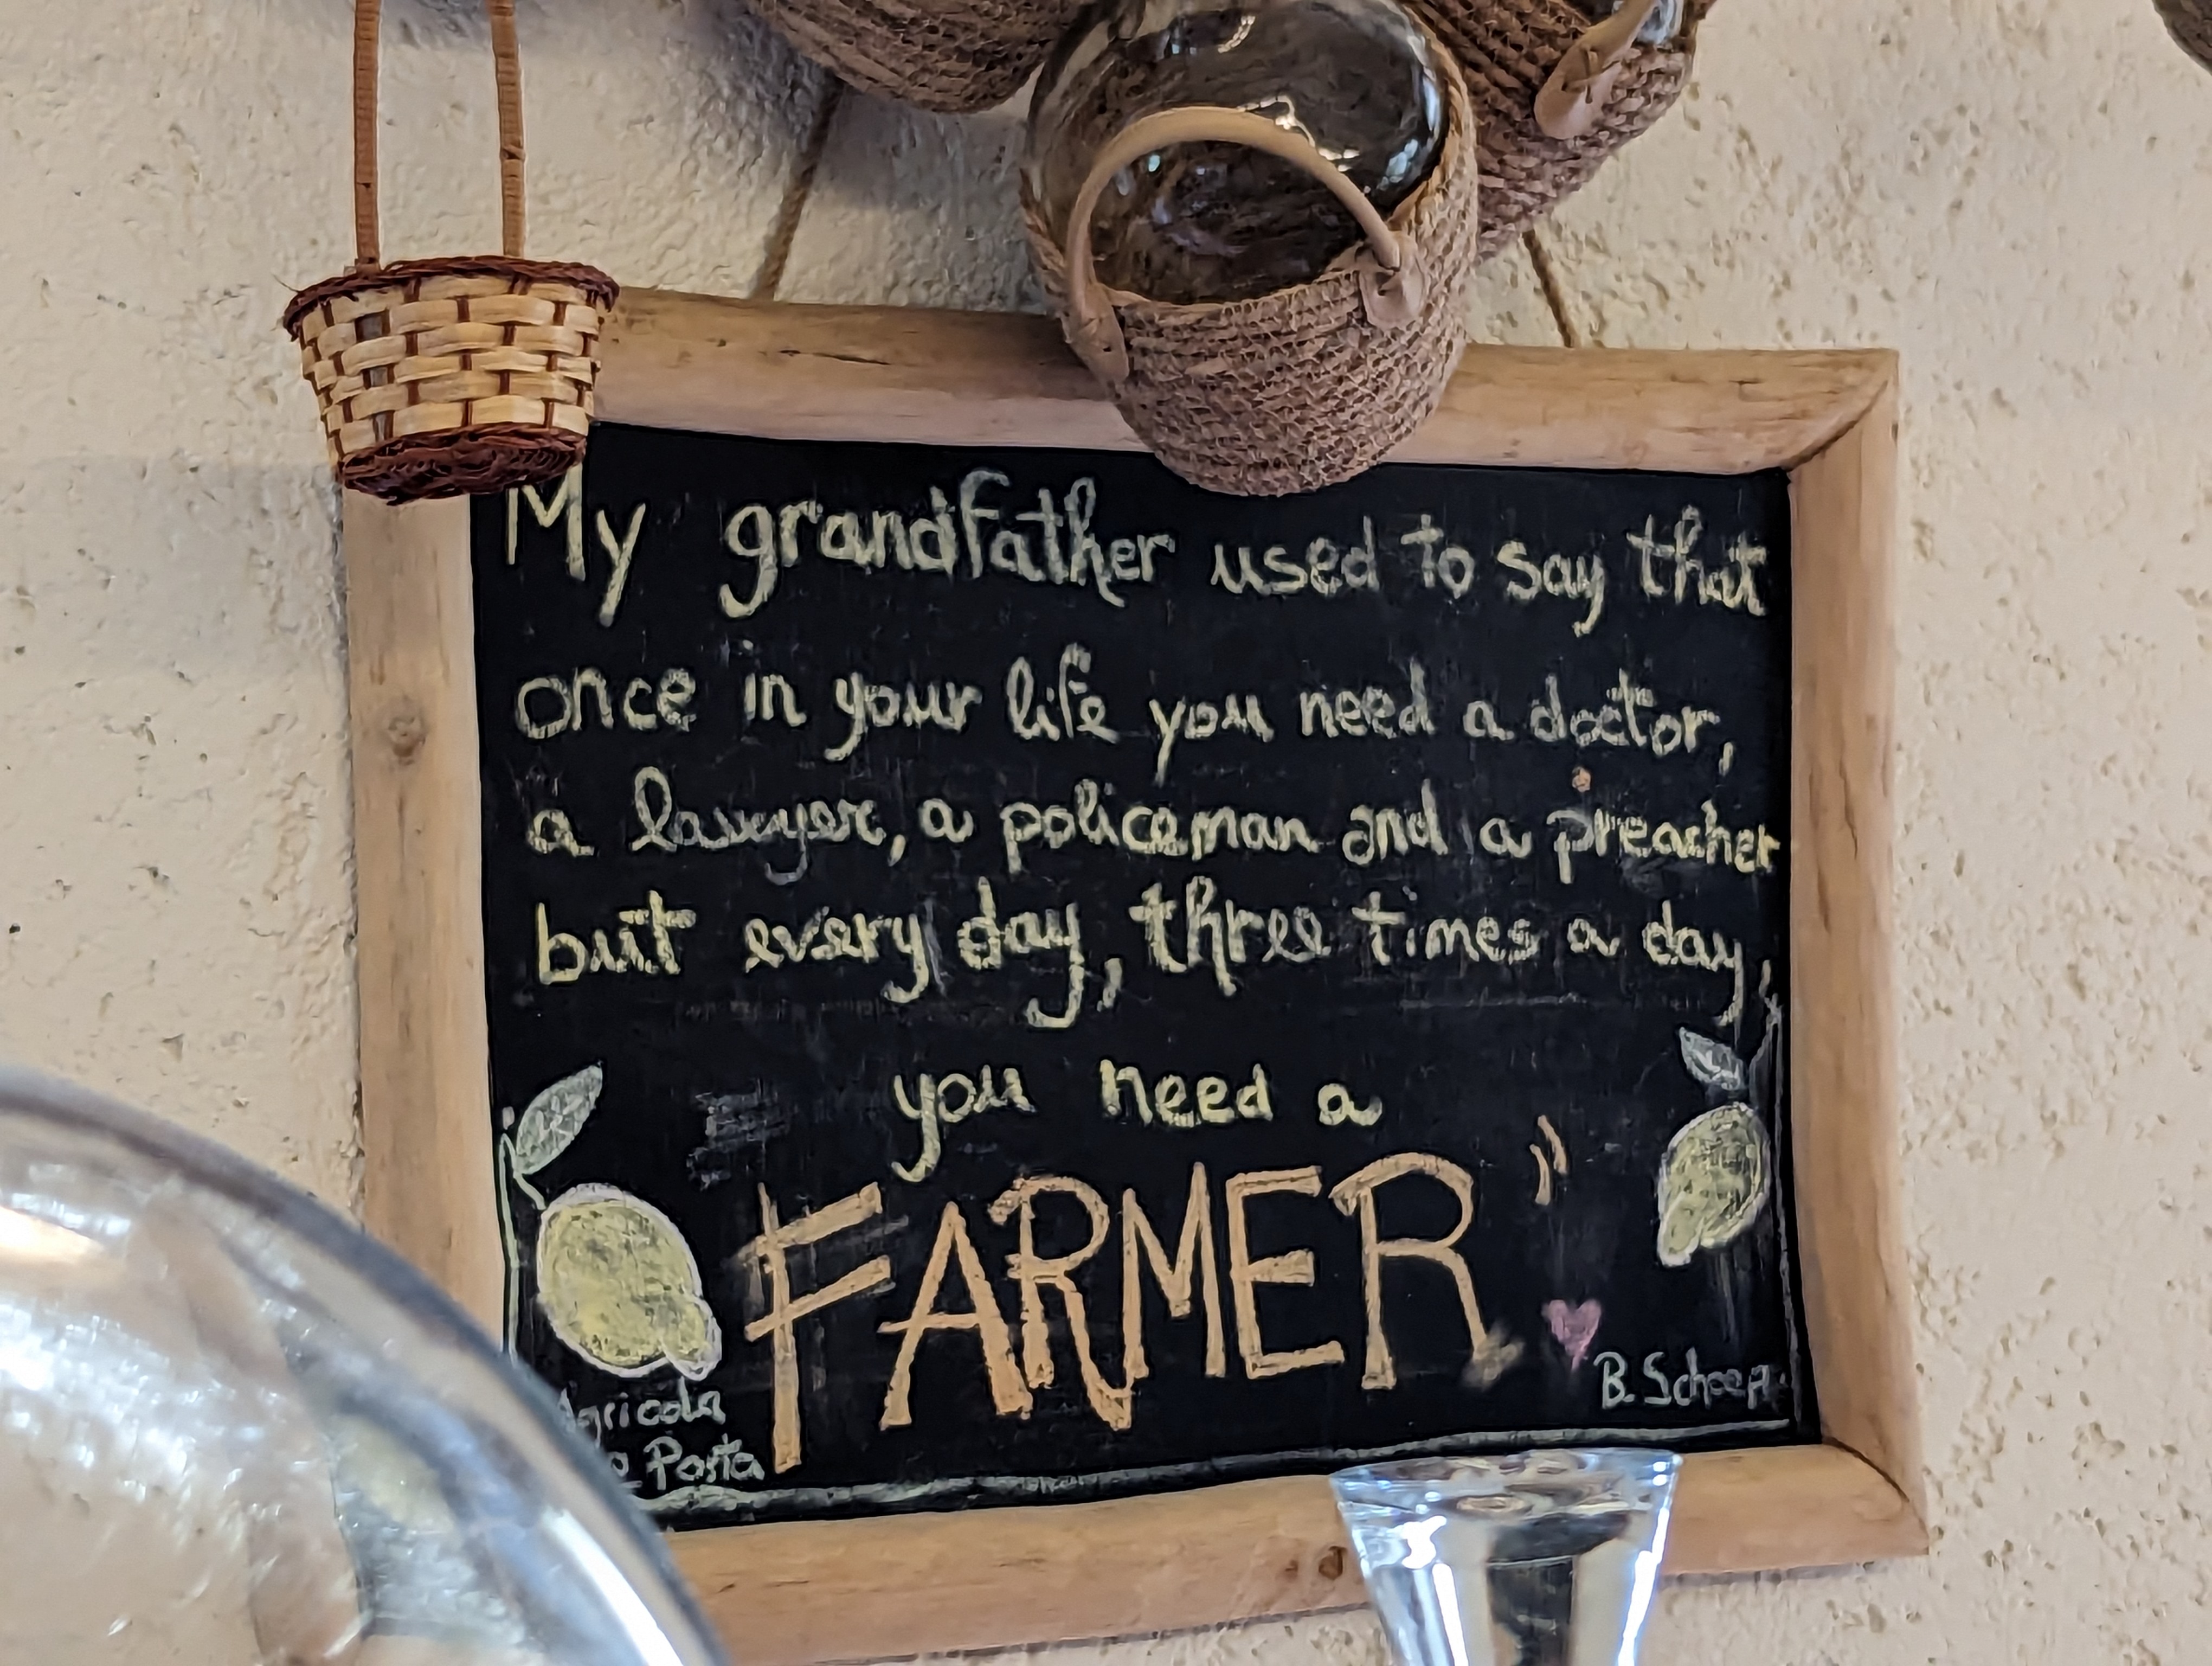 My grandfather used to say that
once in your life you need a doctor,
a lawyer, a policeman and a preacher
but every day, three times a day,
you need a
FARMER"
B. Schoep
Agricola
Posta